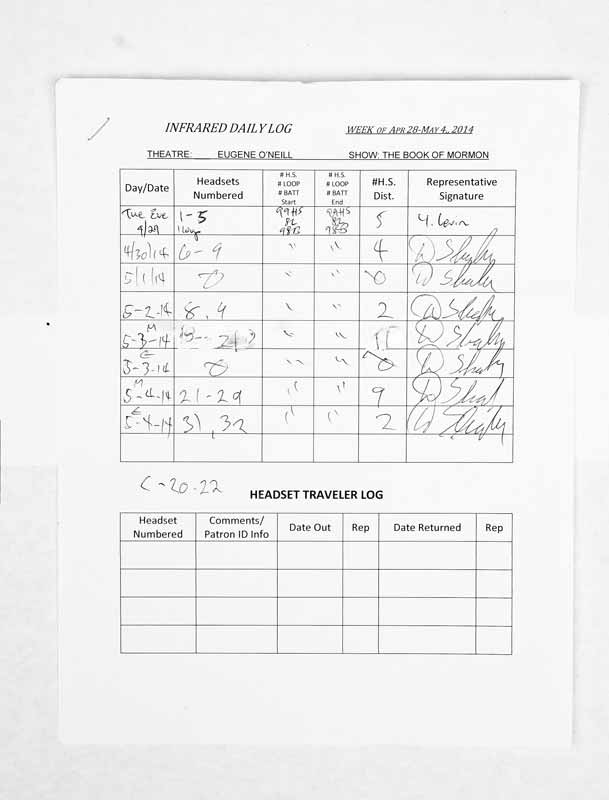 INFRARED DAILY LOG WEEK OF APR 28-MAY 4, 2014
THEATRE: EUGENE O'NEILL SHOW: THE BOOK OF MORMON
Day/Date Headsets Numbered # H.S. # LOOP # BATT Start # H.S. # LOOP # BATT End #H.S. Dist. Representative Signature
Tue Eve 4/29 1-5 1 Loop 99HS 8L 98B 99HS 8L 98B 5 Y. Levin
4/30/14 6-9 " " 4
5/1/14 0 " " 0
5-2-14 8, 9 " " 2
5-3-14 M " " 11
5-3-14 E 0 " " 0
5-4-14 M 21-29 " " 9
5-4-14 E 31, 32 " " 2
C-20-22
HEADSET TRAVELER LOG
Headset Numbered Comments/ Patron ID Info Date Out Rep Date Returned Rep